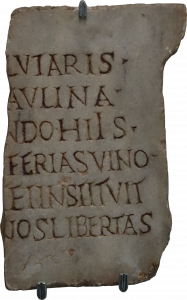 LVTARIS·
AVLINA·
NDOHIIS·
FERIASVINO
ETINSTITVIT
NOSLIBERTAS